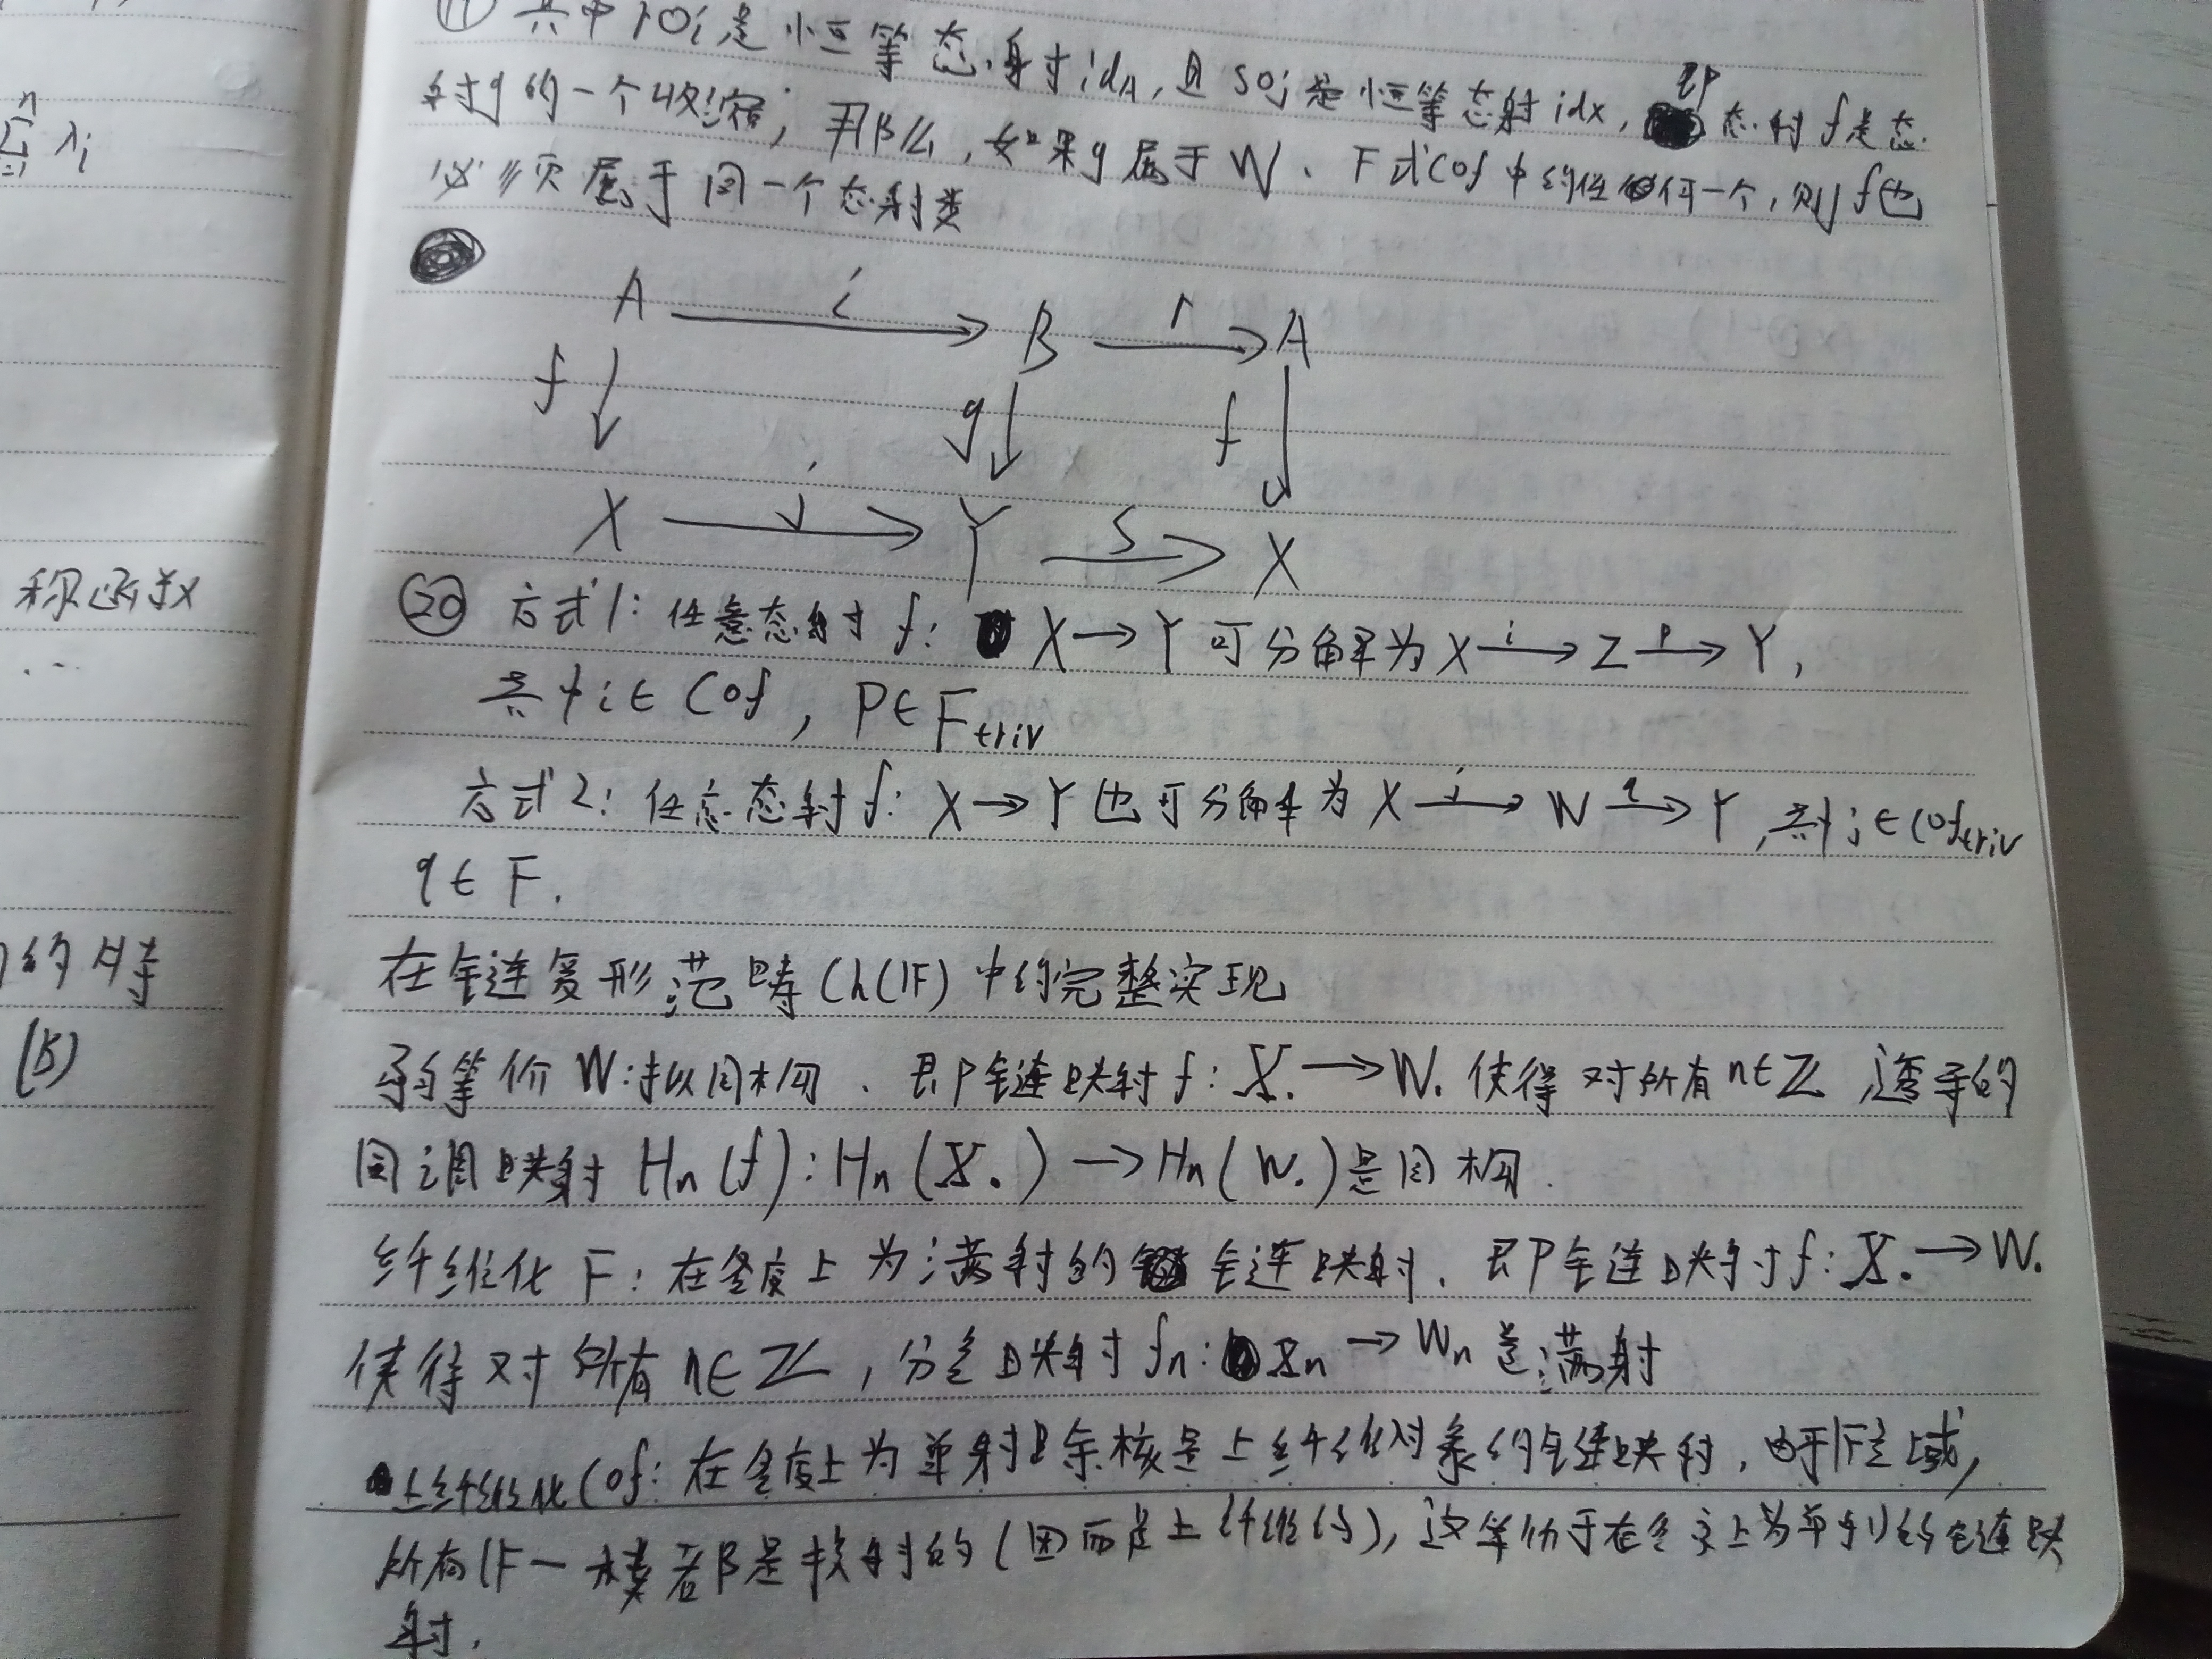 n
Σ λi
i=1
称函数
...
的特
(B)
⑲ 其中 r∘i 是 恒等态射 idA, 且 s∘j 是恒等态射 idX, 即 态射 f 是态
射 g 的一个收缩; 那么, 如果 g 属于 W、F 或 Cof 中的任何一个, 则 f 也
必须属于同一个态射类
A i B r A
f g f
X j Y s X
⑳ 方式1: 任意态射 f: X → Y 可分解为 X –i→ Z –p→ Y,
其中 i ∈ Cof, P ∈ Ftriv
方式2: 任意态射 f: X → Y 也可分解为 X –j→ W –q→ Y, 其中 j ∈ Coftriv
q ∈ F.
在全链复形范畴 Ch(𝔽) 中的完整实现
弱等价 W: 拟同构、即链映射 f: X. → W. 使得对所有 n∈ℤ 诱导的
同调映射 Hn(f): Hn(X.) → Hn(W.) 是同构.
纤维化 F: 在各度上为满射的链映射、即链映射 f: X. → W.
使得对所有 n∈ℤ, 分量映射 fn: Xn → Wn 是满射
上纤维化 Cof: 在各度上为单射且余核是上纤维对象的链映射, 由于𝔽是域,
所有𝔽一模若都是投射的 (因而是上纤维的), 这等价于在各度上为单射的链映
射.